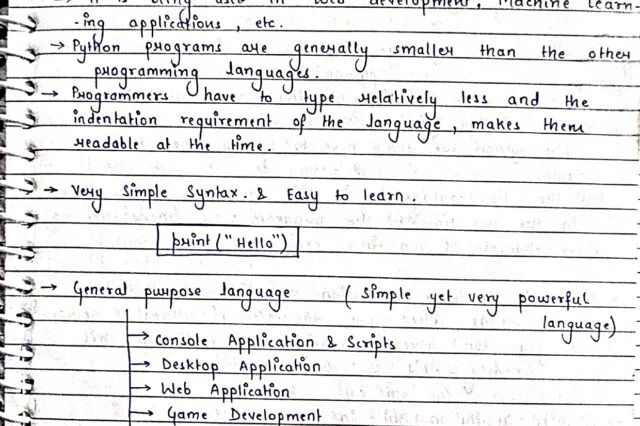 → It is being used in web development, Machine learn-
-ing applications, etc.
→ Python programs are generally smaller than the other
programming languages.
→ Programmers have to type relatively less and the
indentation requirement of the language, makes them
readable at the time.
→ Very Simple Syntax. & Easy to learn.
print ("Hello")
→ General purpose language ( Simple yet very powerful
language)
→ Console Application & Scripts
→ Desktop Application
→ Web Application
→ Game Development